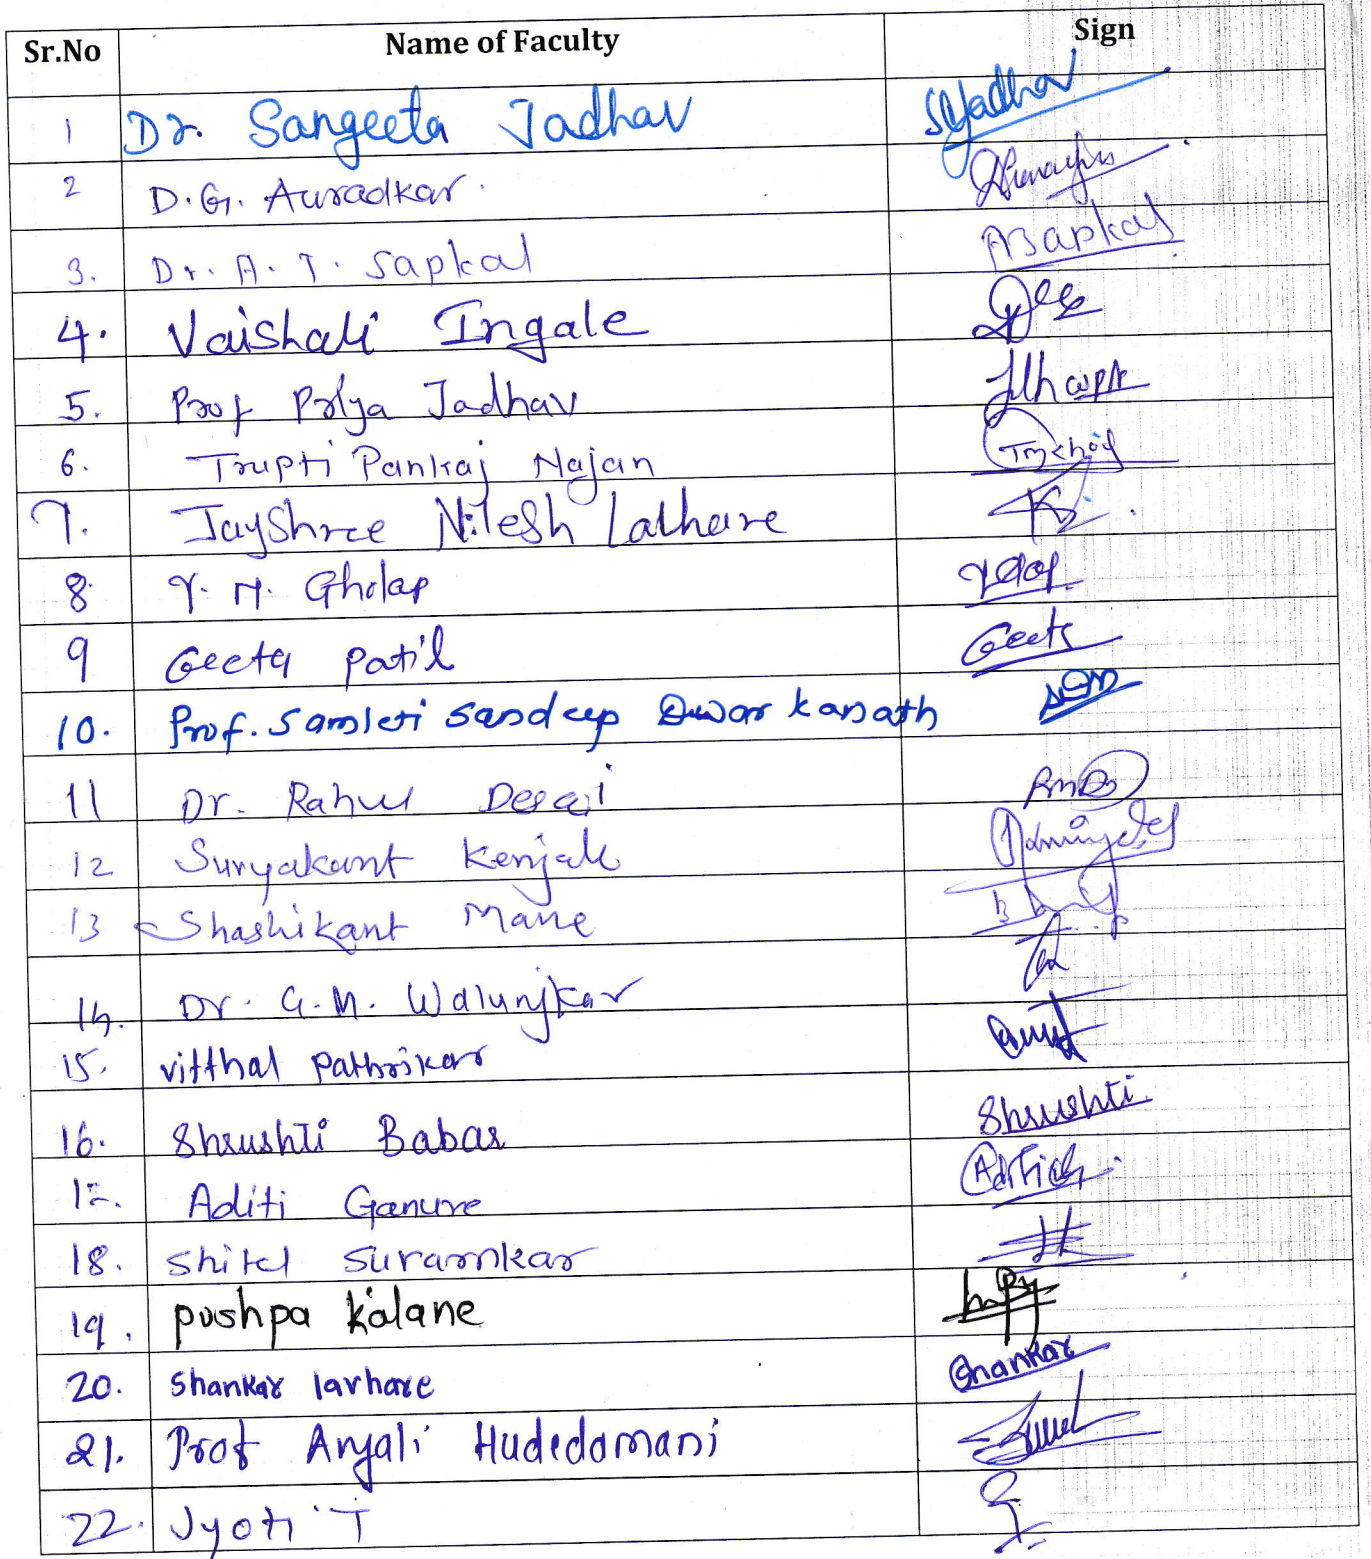 Sr.No Name of Faculty Sign
1 Dr. Sangeeta Jadhav SJadhav
2 D.G. Auradkar.
3. Dr. A. T. Sapkal ASapkal
4. Vaishali Ingale
5. Prof Priya Jadhav
6. Trupti Pankaj Najan
7. JayShree Nilesh Lalhare
8. Y. M. Gholap
9 Geeta Patil Geeta
10. Prof. Samleti Sandeep Dwarkanath
11 Dr. Rahul Desai RMD
12 Suryakant Kenjale
13 Shashikant Mane
14. Dr. G.M. Walunjkar
15. vitthal Pathrikar
16. Shrushti Babar Shrushti
17. Aditi Ganure Aditi
18. Shital Suramkar
19. pushpa kalane
20. Shankar lavhare Shankar
21. Prof Anjali Hudedamani
22. Jyoti T